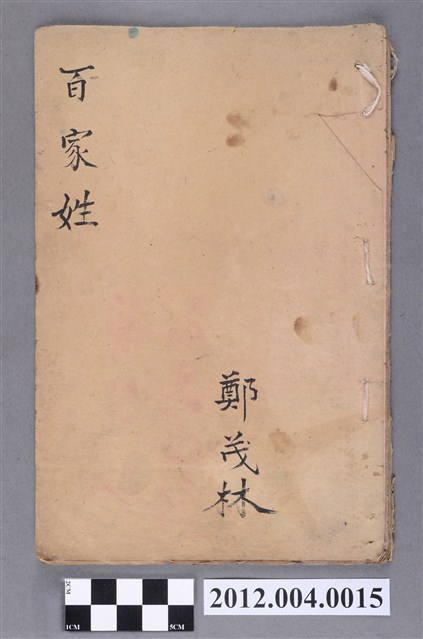 百家姓
鄭茂林
2CM
1CM
5CM
2012.004.0015